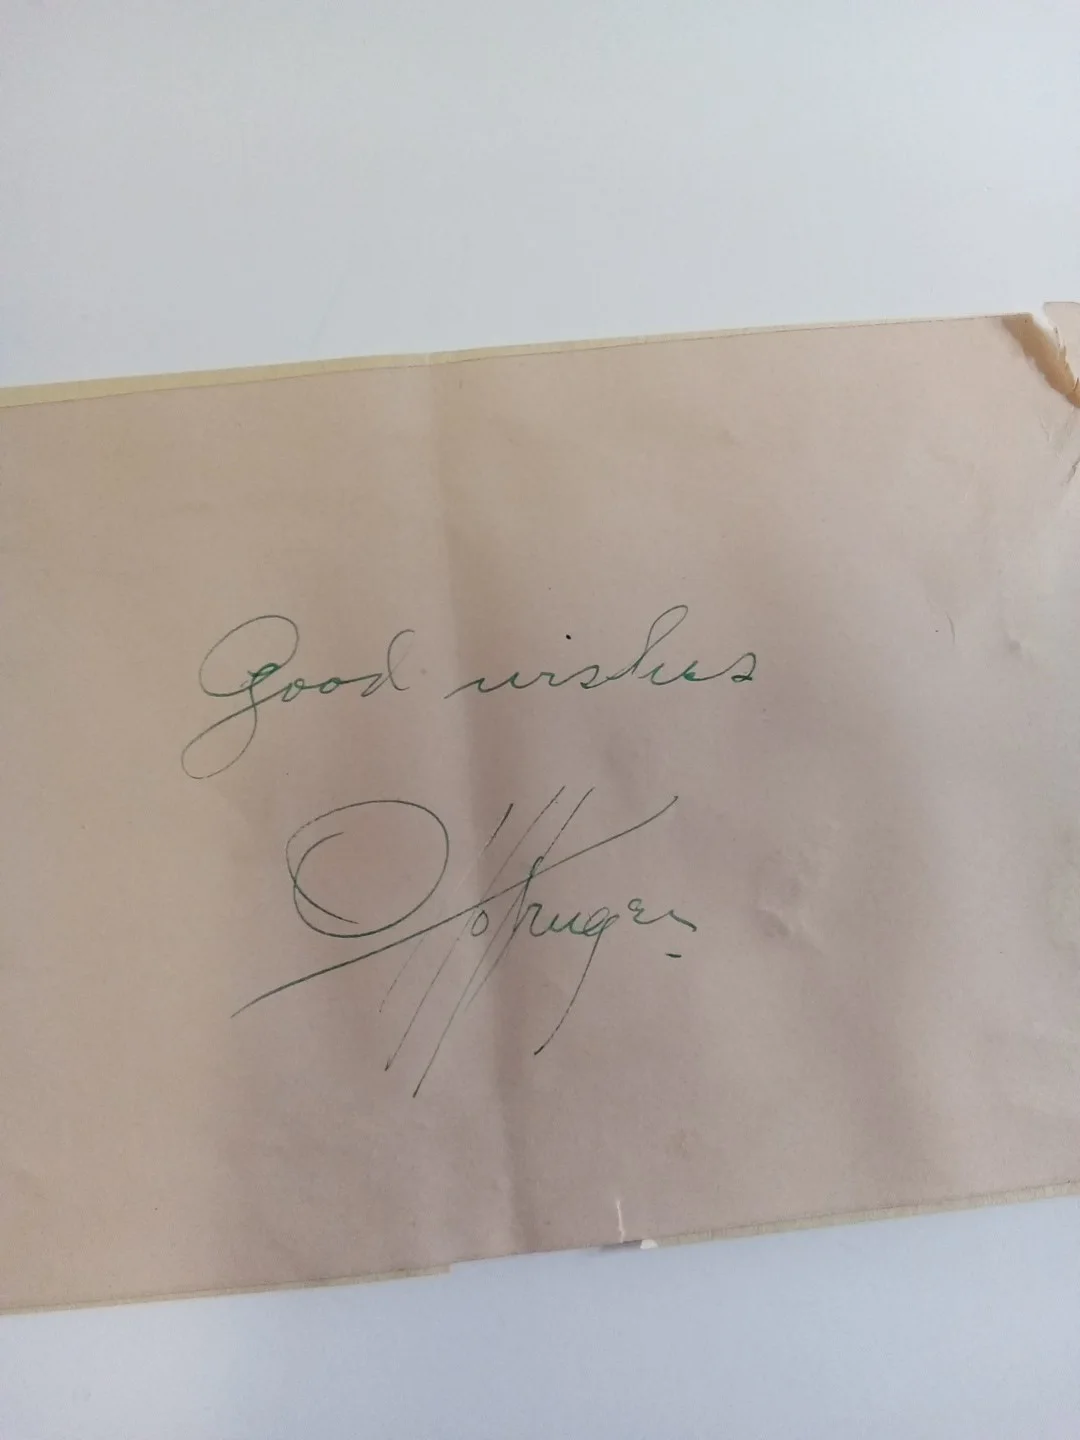 Good wishes
Otto Kruger